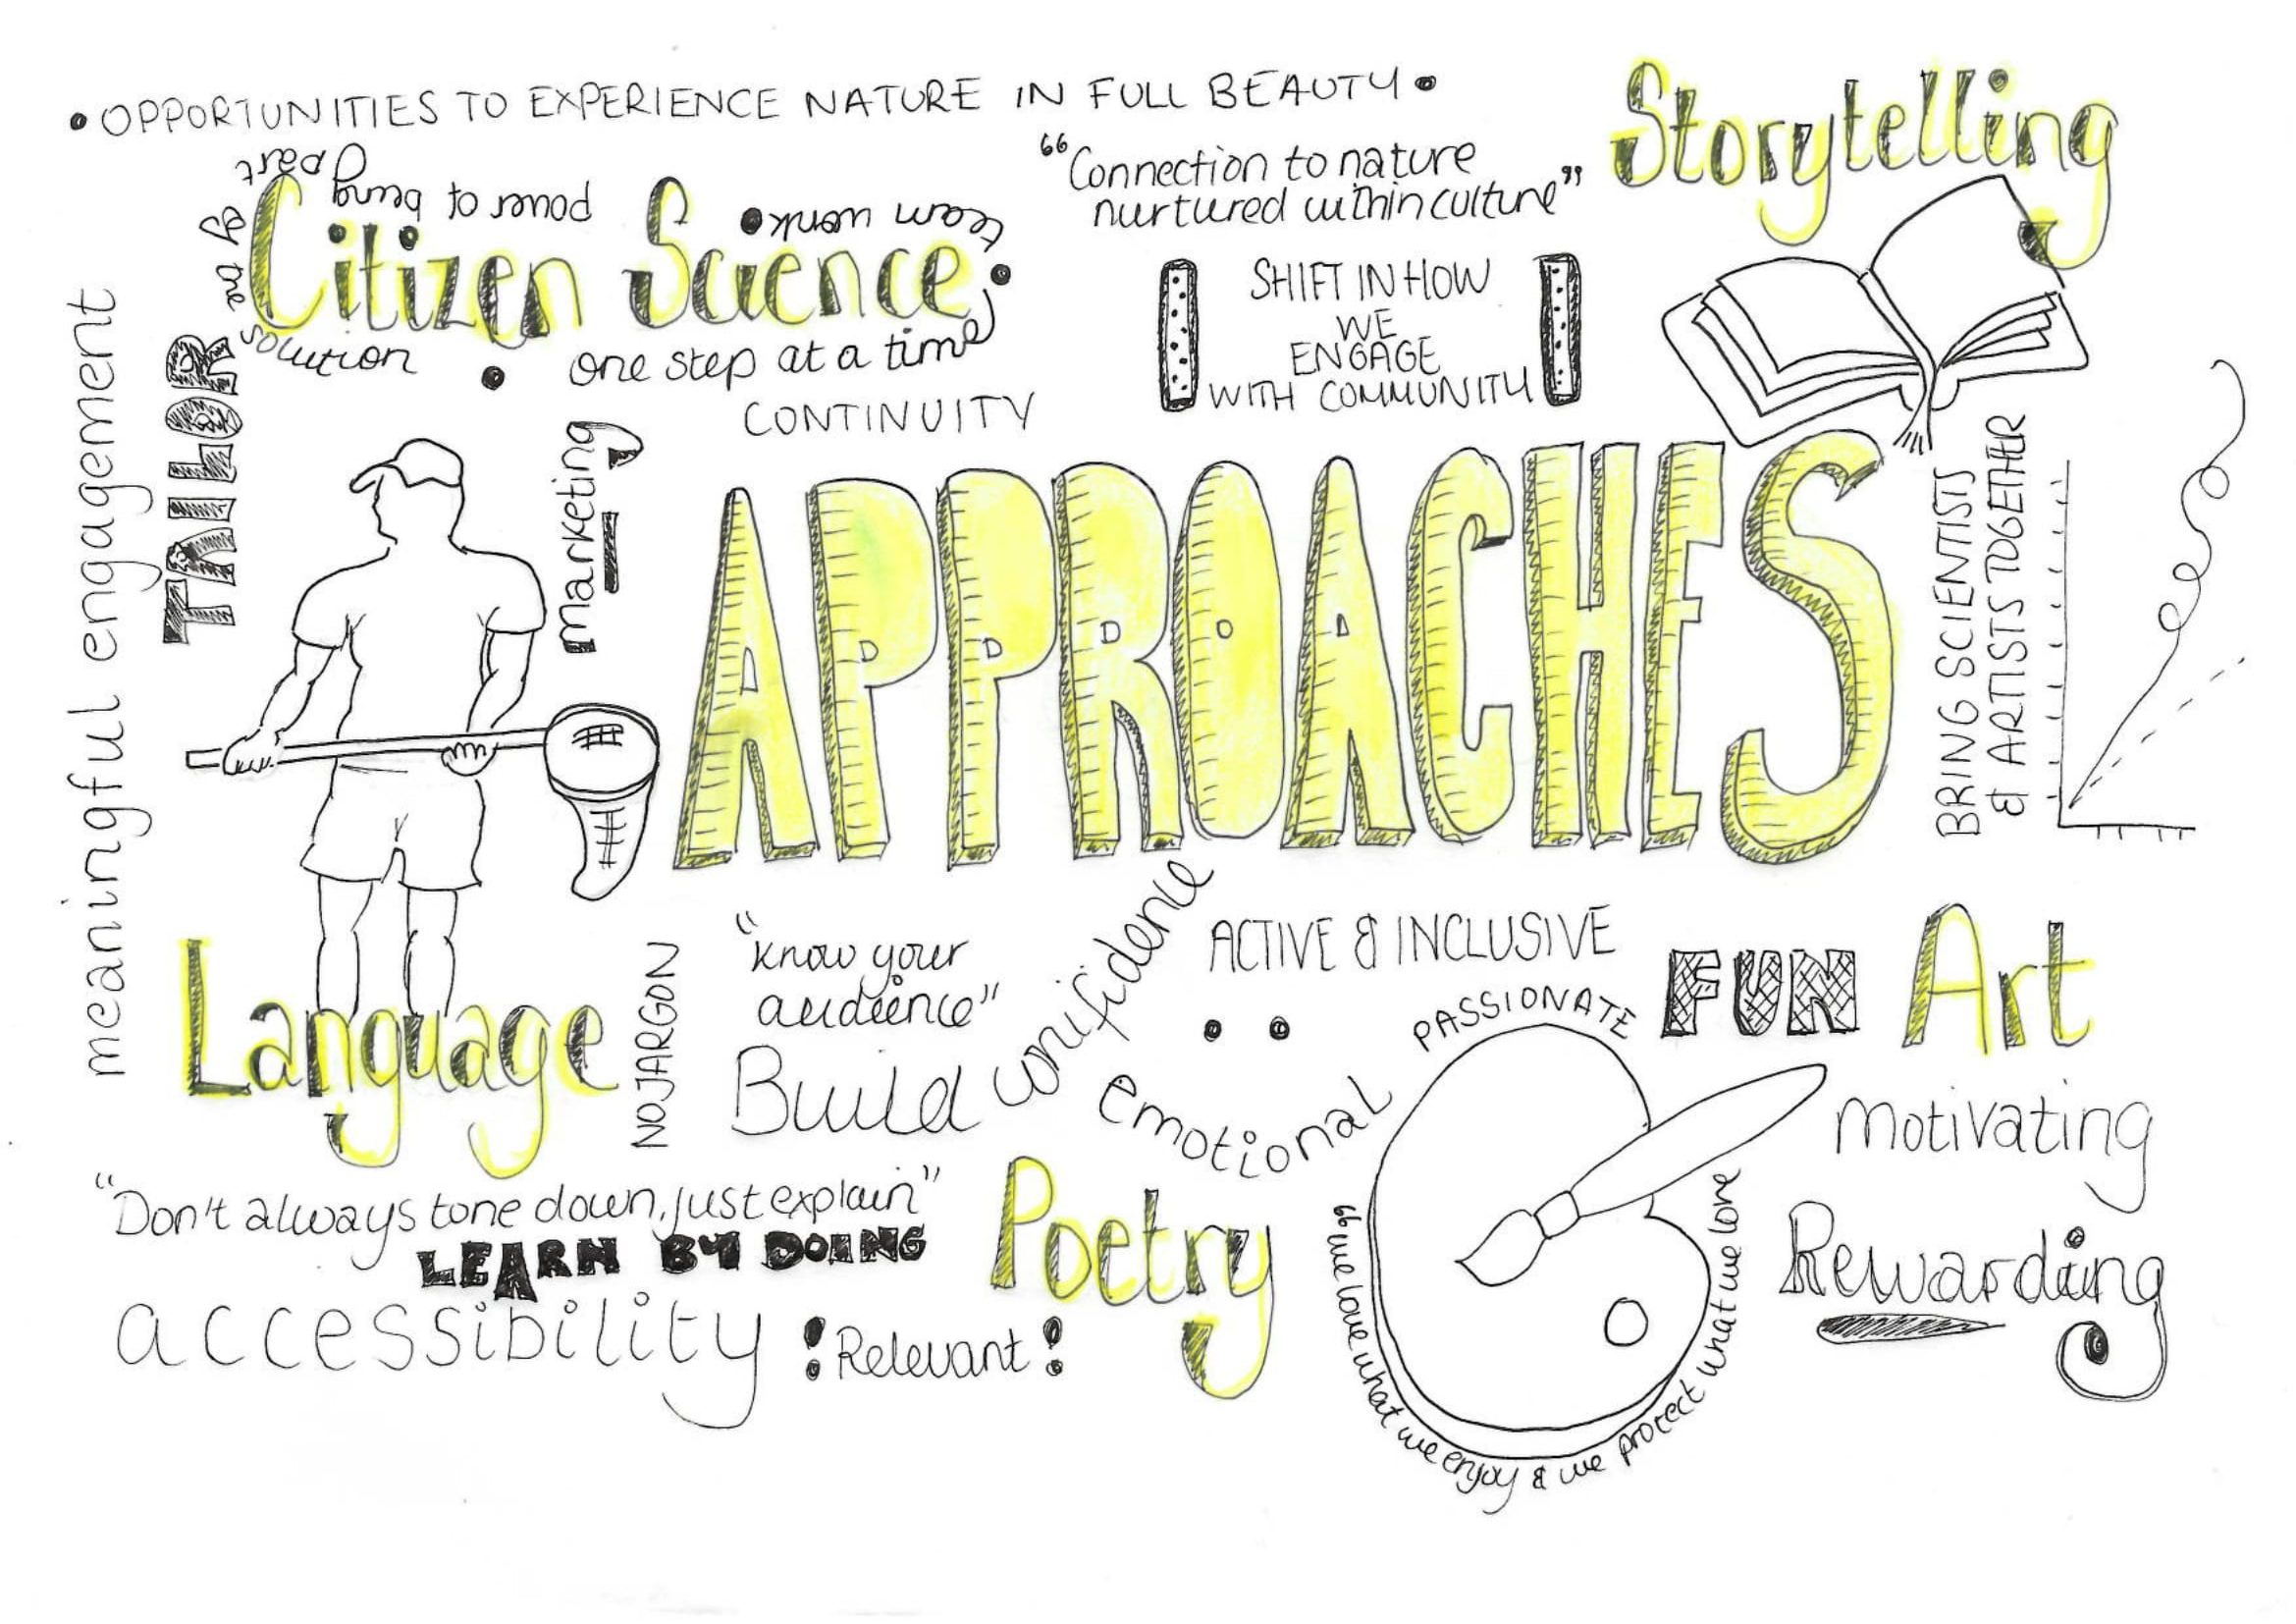 • OPPORTUNITIES TO EXPERIENCE NATURE IN FULL BEAUTY •
Storytelling
"Connection to nature
nurtured within culture"
Citizen Science
team work • power of being part of the solution • one step at a time •
SHIFT IN HOW
WE
ENGAGE
WITH COMMUNITY
CONTINUITY
meaningful engagement
TAILOR
marketing
APPROACHES
BRING SCIENTISTS
& ARTISTS TOGETHER
Language
NO JARGON
"know your
audience"
Build confidence
ACTIVE & INCLUSIVE
emotional
PASSIONATE
FUN
Art
motivating
Rewarding
"Don't always tone down, just explain"
LEARN BY DOING
accessibility
! Relevant !
Poetry
"we love what we enjoy & we protect what we love